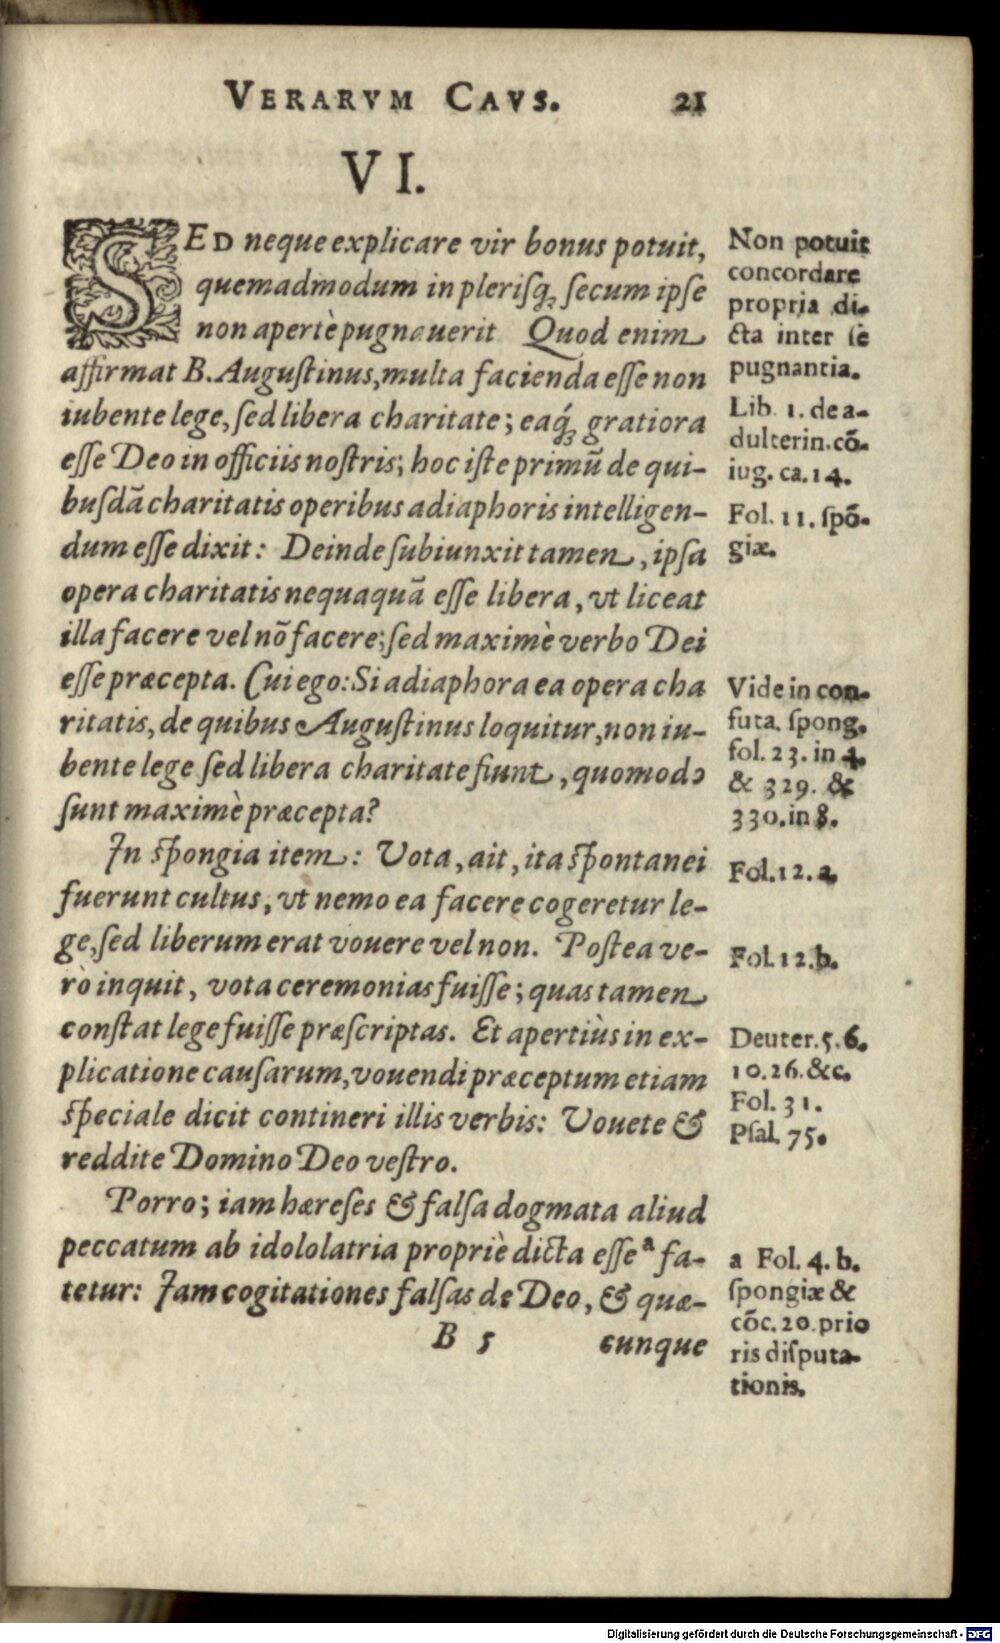 VERARVM CAVS. 21
VI.
SED neque explicare vir bonus potuit,
quemadmodum in plerisq; secum ipse
non apertè pugnauerit Quod enim
affirmat B. Augustinus, multa facienda esse non
iubente lege, sed libera charitate; eaq́; gratiora
esse Deo in officiis nostris; hoc iste primũ de qui-
busdã charitatis operibus adiaphoris intelligen-
dum esse dixit: Deinde subiunxit tamen, ipsa
opera charitatis nequaquã esse libera, vt liceat
illa facere vel nõ facere; sed maximè verbo Dei
esse præcepta. Cui ego: Si adiaphora ea opera cha
ritatis, de quibus Augustinus loquitur, non iu-
bente lege sed libera charitate fiunt, quomodo
sunt maximè præcepta?
In spongia item: Vota, ait, ita spontanei
fuerunt cultus, vt nemo ea facere cogeretur le-
ge, sed liberum erat vouere vel non. Postea ve-
rò inquit, vota ceremonias fuisse; quas tamen
constat lege fuisse præscriptas. Et apertiùs in ex-
plicatione causarum, vouendi præceptum etiam
speciale dicit contineri illis verbis: Vouete &
reddite Domino Deo vestro.
Porro; iam hæreses & falsa dogmata aliud
peccatum ab idololatria propriè dicta esse ᵃ fa-
tetur: Iam cogitationes falsas de Deo, & quæ-
B 5 cunque
Non potuit
concordare
propria di-
cta inter se
pugnantia.
Lib. 1. de a-
dulterin. cõ-
iug. ca. 14.
Fol. 11. spõ-
giæ.
Vide in con-
futa. spong.
fol. 23. in 4.
& 329. &
330. in 8.
Fol. 12. a.
Fol. 12. b.
Deuter. 5. 6.
10. 26. &c.
Fol. 31.
Psal. 75.
a Fol. 4. b.
spongiæ &
cõc. 20. prio
ris disputa-
tionis.
Digitalisierung gefördert durch die Deutsche Forschungsgemeinschaft - DFG